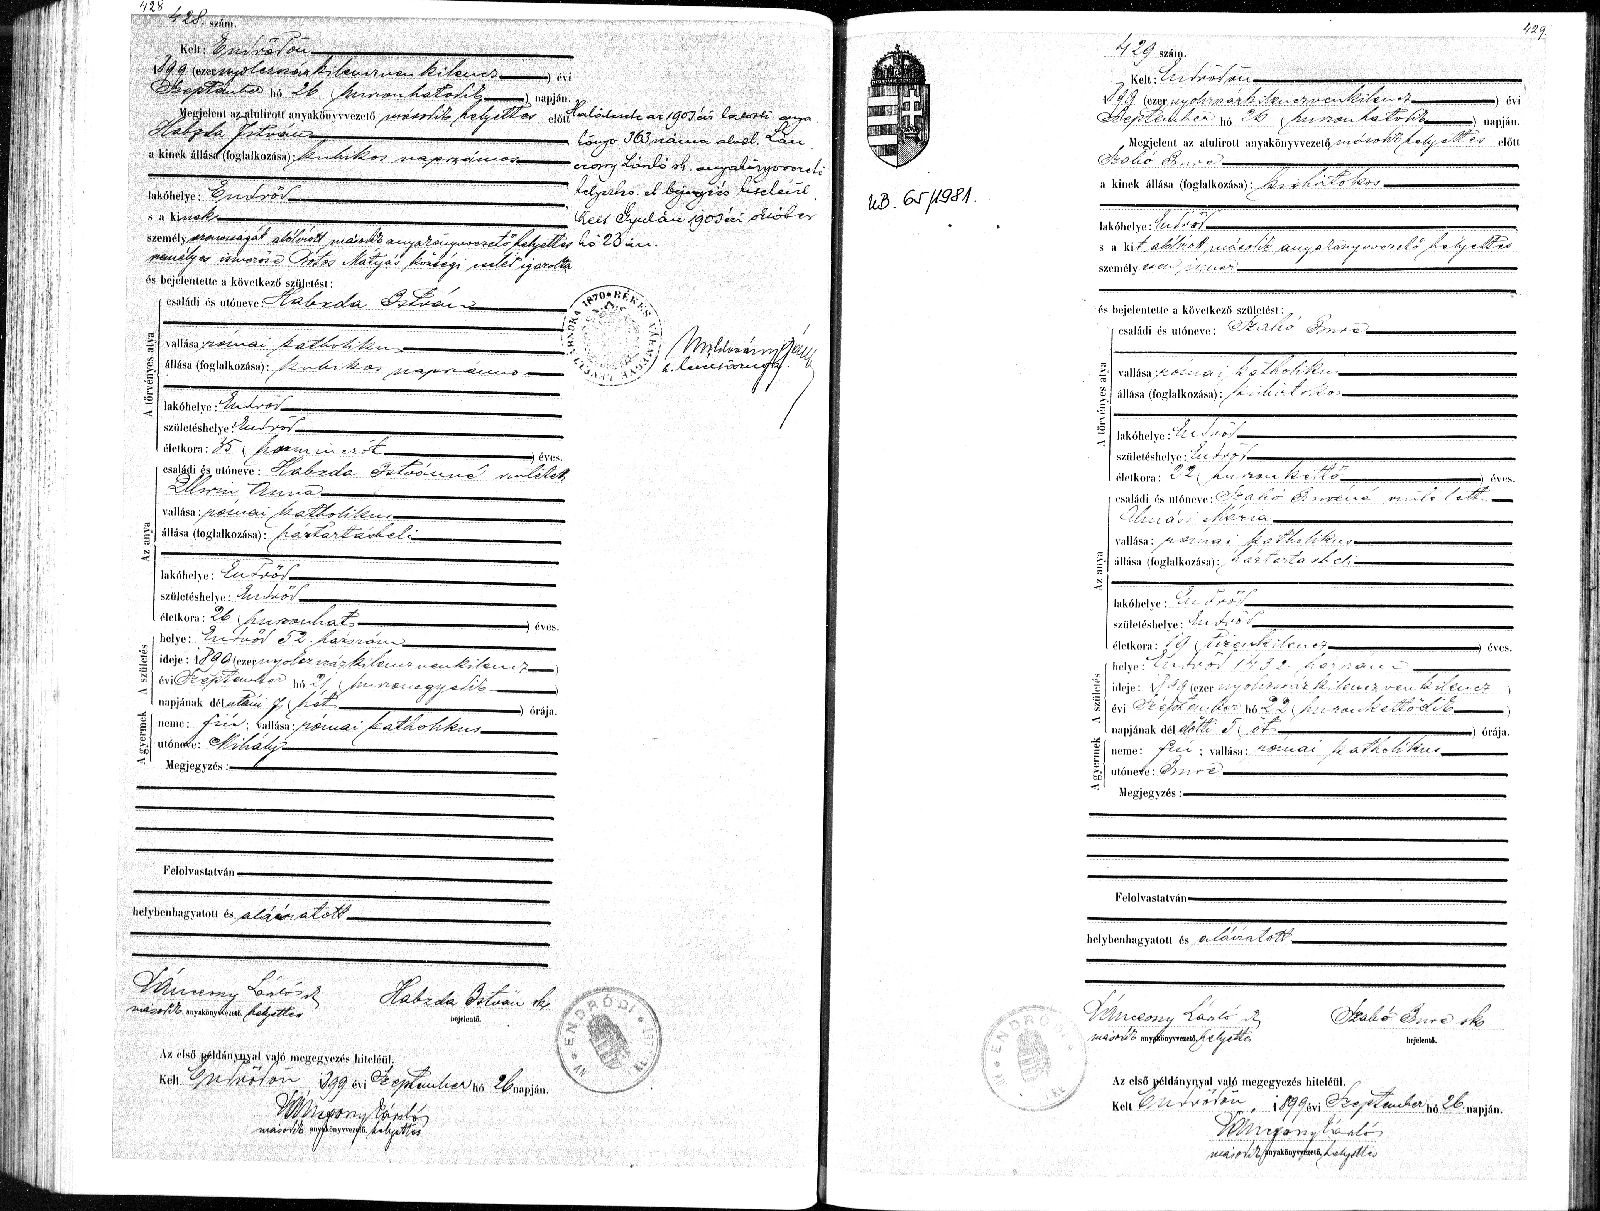 428
428. szám.
Kelt: Endrődön
1899 (ezernyolczszázkilenczvenkilencz) évi
Szeptember hó 26 (huszonhatodik) napján.
Megjelent az alulirott anyakönyvvezető második helyettes előtt
Habzda István
a kinek állása (foglalkozása): kubikos napszámos
lakóhelye: Endrőd
s a kinek
személyazonosságát alulírott második anyakönyvvezető helyettes
személyes ismerőse Mátyás községi igazolta
és bejelentette a következő születést:
A törvényes atya
családi és utóneve: Habzda István
vallása: római katholikus
állása (foglalkozása): kubikos napszámos
lakóhelye: Endrőd
születéshelye: Endrőd
életkora: 35 (harminczöt) éves.
Az anya
családi és utóneve: Habzda Istvánné született
Anna
vallása: római katholikus
állása (foglalkozása): háztartásbeli
lakóhelye: Endrőd
születéshelye: Endrőd
életkora: 26 (huszonhat) éves.
A születés
helye: Endrőd 52 házszám
ideje: 1899 (ezernyolczszázkilenczvenkilencz)
évi Szeptember hó 21 (huszonegyedik)
napjának délutáni 7 (hét) órája.
A gyermek
neme: fiú; vallása: római katholikus
utóneve: Mihály
Megjegyzés:
Felolvastatván
helybenhagyatott és aláíratott
Lánczony László sk
második anyakönyvvezető helyettes
Habzda István sk
bejelentő.
Az első példánynyal való megegyezés hiteléül.
Kelt Endrődön, 1899 évi Szeptember hó 26 napján.
Lánczony László
második anyakönyvvezető helyettes
ENDRŐDI
az 1903 évi
363 száma alatt. Lán
czony László sk. anyakönyvvezető
helyettes. E bejegyzés hiteléül.
Kelt Gyulán 1903 évi október
hó 23 án.
1876 BÉKÉS VÁRMEGYE LEVÉLTÁRNOKA
429
429 szám.
Kelt: Endrődön
1899 (ezernyolczszázkilenczvenkilencz) évi
Szeptember hó 26 (huszonhatodik) napján.
Megjelent az alulirott anyakönyvvezető második helyettes előtt
Szabó Imre
a kinek állása (foglalkozása): kisbirtokos
lakóhelye: Endrőd
s a kit alulírott második anyakönyvvezető helyettes
személyesen ismer
és bejelentette a következő születést:
A törvényes atya
családi és utóneve: Szabó Imre
vallása: római katholikus
állása (foglalkozása): kisbirtokos
lakóhelye: Endrőd
születéshelye: Endrőd
életkora: 22 (huszonkettő) éves.
Az anya
családi és utóneve: Szabó Imréné született
Mária
vallása: római katholikus
állása (foglalkozása): háztartásbeli
lakóhelye: Endrőd
születéshelye: Endrőd
életkora: 19 (tizenkilencz) éves.
A születés
helye: Endrőd 1432. házszám
ideje: 1899 (ezernyolczszázkilenczvenkilencz)
évi Szeptember hó 22 (huszonkettődik)
napjának délelőtti 5 (öt) órája.
A gyermek
neme: fiú; vallása: római katholikus
utóneve: Imre
Megjegyzés:
Felolvastatván
helybenhagyatott és aláíratott
Lánczony László sk
második anyakönyvvezető helyettes
Szabó Imre sk
bejelentő.
Az első példánynyal való megegyezés hiteléül.
Kelt Endrődön, 1899 évi Szeptember hó 26 napján.
Lánczony László
második anyakönyvvezető helyettes
ENDRŐDI
UB. 65/1981.